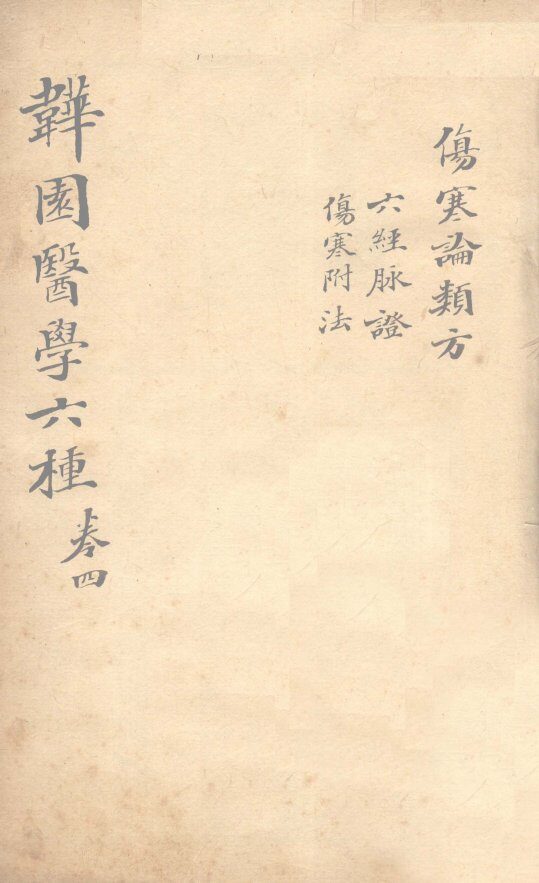 傷寒論類方
六經脉證
傷寒附法
韡園醫學六種
卷四